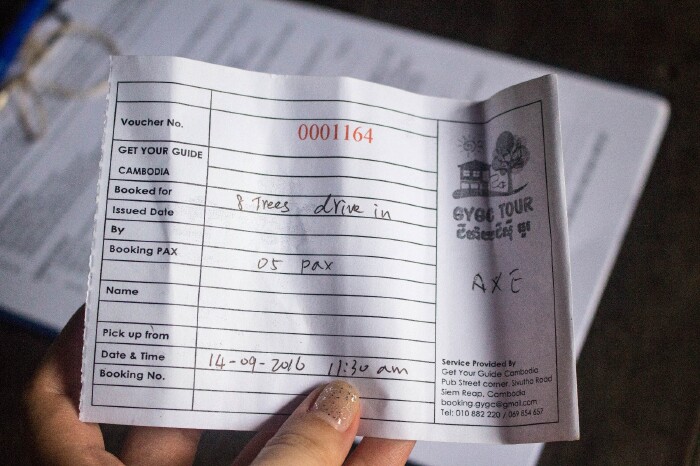 Voucher No. 0001164
GET YOUR GUIDE
CAMBODIA
Booked for 8 Trees drive in
Issued Date
By
Booking PAX 05 pax
Name
Pick up from
Date & Time 14-09-2016 11:30 am
Booking No.
GYGC TOUR
AXE
Service Provided By
Get Your Guide Cambodia
Pub Street corner, Sivutha Road
Siem Reap, Cambodia
booking.gygc@gmail.com
Tel: 010 882 220 / 069 854 657